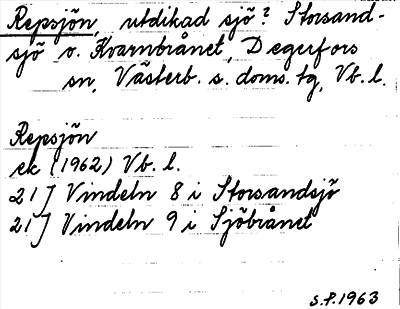 Repsjön, utdikad sjö? Storsand-
sjö o. Kvarnbrånet, Degerfors
sn, Västerb. s. doms. tg, Vb. l.
Repsjön
ek (1962) Vb. l.
21J Vindeln 8 i Storsandsjö
21J Vindeln 9 i Sjöbrånet
S.P. 1963